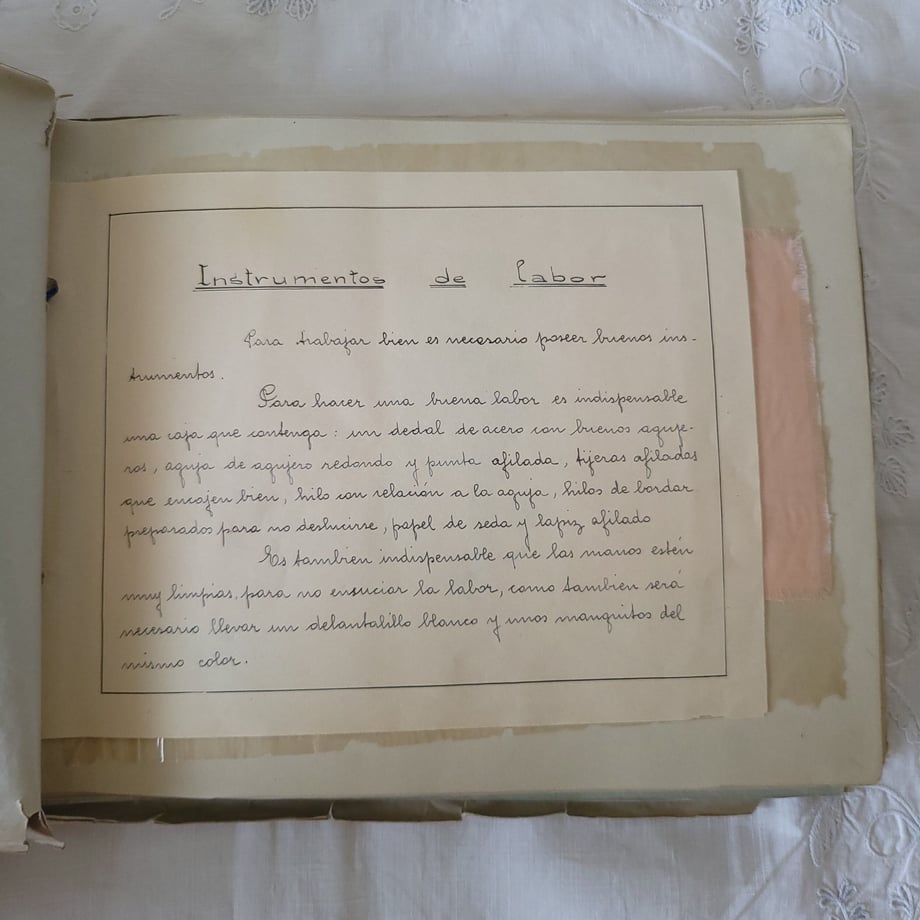 Instrumentos de labor
Para trabajar bien es necesario poseer buenos ins-
trumentos.
Para hacer una buena labor es indispensable
una caja que contenga: un dedal de acero con buenos aguje-
ros, aguja de agujero redondo y punta afilada, tijeras afiladas
que encajen bien, hilo con relación a la aguja, hilos de bordar
preparados para no deslucirse, papel de seda y lapiz afilado
Es tambien indispensable que las manos estén
muy limpias, para no ensuciar la labor, como tambien será
necesario llevar un delantalillo blanco y unos manguitos del
mismo color.